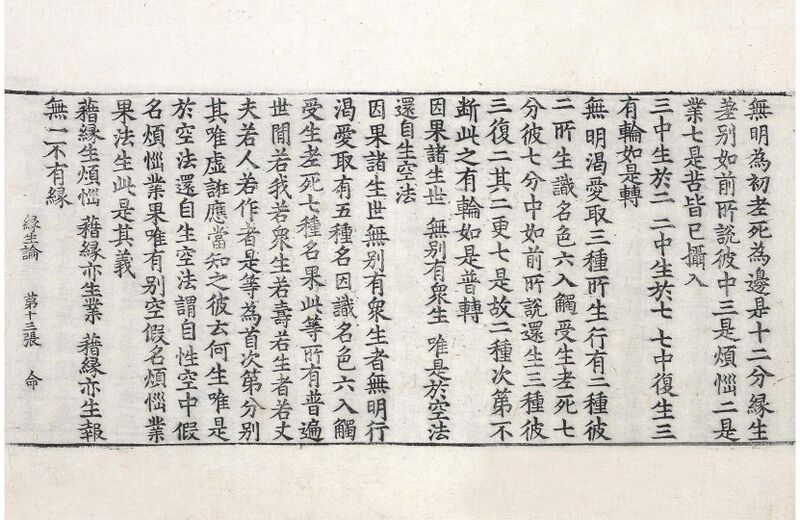 無明為初老死為邊是十二分緣生
差別如前所說彼中三是煩惱二是
業七是苦皆已攝入
三中生於二 二中生於七 七中復生三
有輪如是轉
無明渴愛取三種所生行有二種彼
二所生識名色六入觸受生老死七
分彼七分中如前所說還生三種彼
三復二其二更七是故二種次第不
断此之有輪如是普轉
因果諸生世 無別有衆生 唯是於空法
還自生空法
因果諸生世無別有衆生者無明行
渴愛取有五種名因識名色六入觸
受生老死七種名果此等所有普遍
世間若我若衆生若壽若生者若丈
夫若人若作者是等為首次第分別
其唯虛誑應當知之彼云何生唯是
於空法還自生空法謂自性空中假
名煩惱業果唯有別空假名煩惱業
果法生此是其義
藉緣生煩惱 藉緣亦生業 藉緣亦生報
無一不有緣
緣生論 第十三張 命